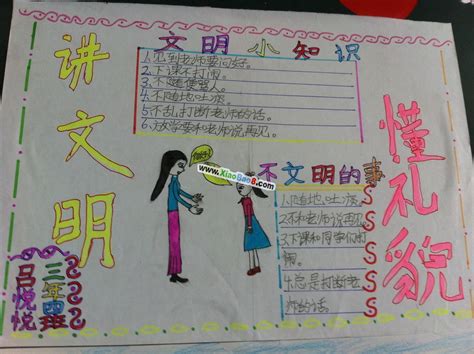 讲文明
懂礼貌
文明小知识
1.见到老师要问好。
2.下课不打闹。
3.不随便骂人。
4.不随地吐痰。
5.不乱打断老师的话。
6.放学要和老师说再见。
www.XiaoBao8.com
不文明的事
1.随地吐痰。
2.不和老师说再见。
3.下课和同学们打
闹。
4.总是打断老
师的话。
三年四班
吕悦悦